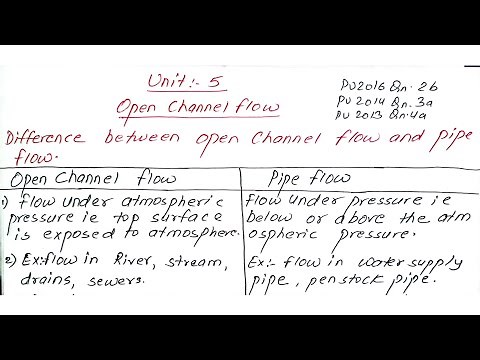 Unit:- 5
Open Channel flow
PU2016 Qn. 2b
PU 2014 Qn. 3a
PU 2013 Qn.4a
Difference between open Channel flow and pipe
flow.
Open Channel flow
Pipe flow
1) flow under atmospheric
pressure ie top surface
is exposed to atmosphere.
flow under pressure ie
below or above the atm
ospheric pressure.
2) Ex:flow in River, stream,
drains, sewers.
Ex:- flow in water supply
pipe, penstock pipe.